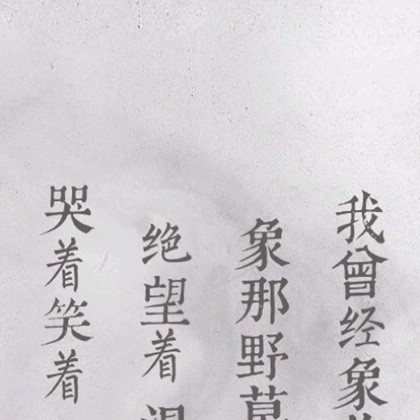 我曾经象
象那野草
绝望着
哭着笑着